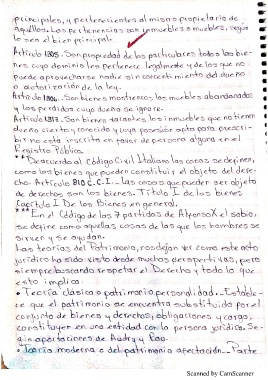 principales, y pertenecientes al mismo propietario de
aquellos. Las pertenencias son inmuebles o muebles, según
lo sea el bien principal.
Artículo 1805. Son propiedad de los particulares todos los bie-
nes cuyo dominio les pertenece legalmente y de los que no
puede aprovecharse nadie sin consentimiento del dueño
o autorización de la ley.
Artículo 1806. Son bienes mostrencos los muebles abandonados
y los perdidos cuyo dueño se ignore.
Artículo 1813. Son bienes vacantes, los inmuebles que no tienen
dueño cierto y conocido y cuya posesión apta para prescri-
bir no está inscrita en favor de persona alguna en el
Registro Público.
**De acuerdo al Código Civil Italiano las cosas se definen,
como los bienes que pueden constituir el objeto del dere-
cho. Artículo 810 C.C.I - las cosas que pueden ser objeto
de derechos son los bienes. Título I de los bienes
Capítulo I De los Bienes en general.
**En el Código de las 7 partidas de Alfonso X el sabio,
se define como aquellas cosas de las que los hombres se
sirven y se ayudan.
Las teorías del Patrimonio, nos dejan ver como este acto
jurídico ha sido visto desde muchas perspectivas, pero
siempre buscando respetar el Derecho y todo lo que
esto implica.
• Teoría clásica o patrimonio personalidad.- Estable-
ce que el patrimonio se encuentra substituido por el
conjunto de bienes y derechos, obligaciones y cargas,
constituyen en una entidad con la persona jurídica. Se-
gún aportaciones de Aubry y Rau.
• Teoría moderna o del patrimonio afectación.- Parte
Scanned by CamScanner